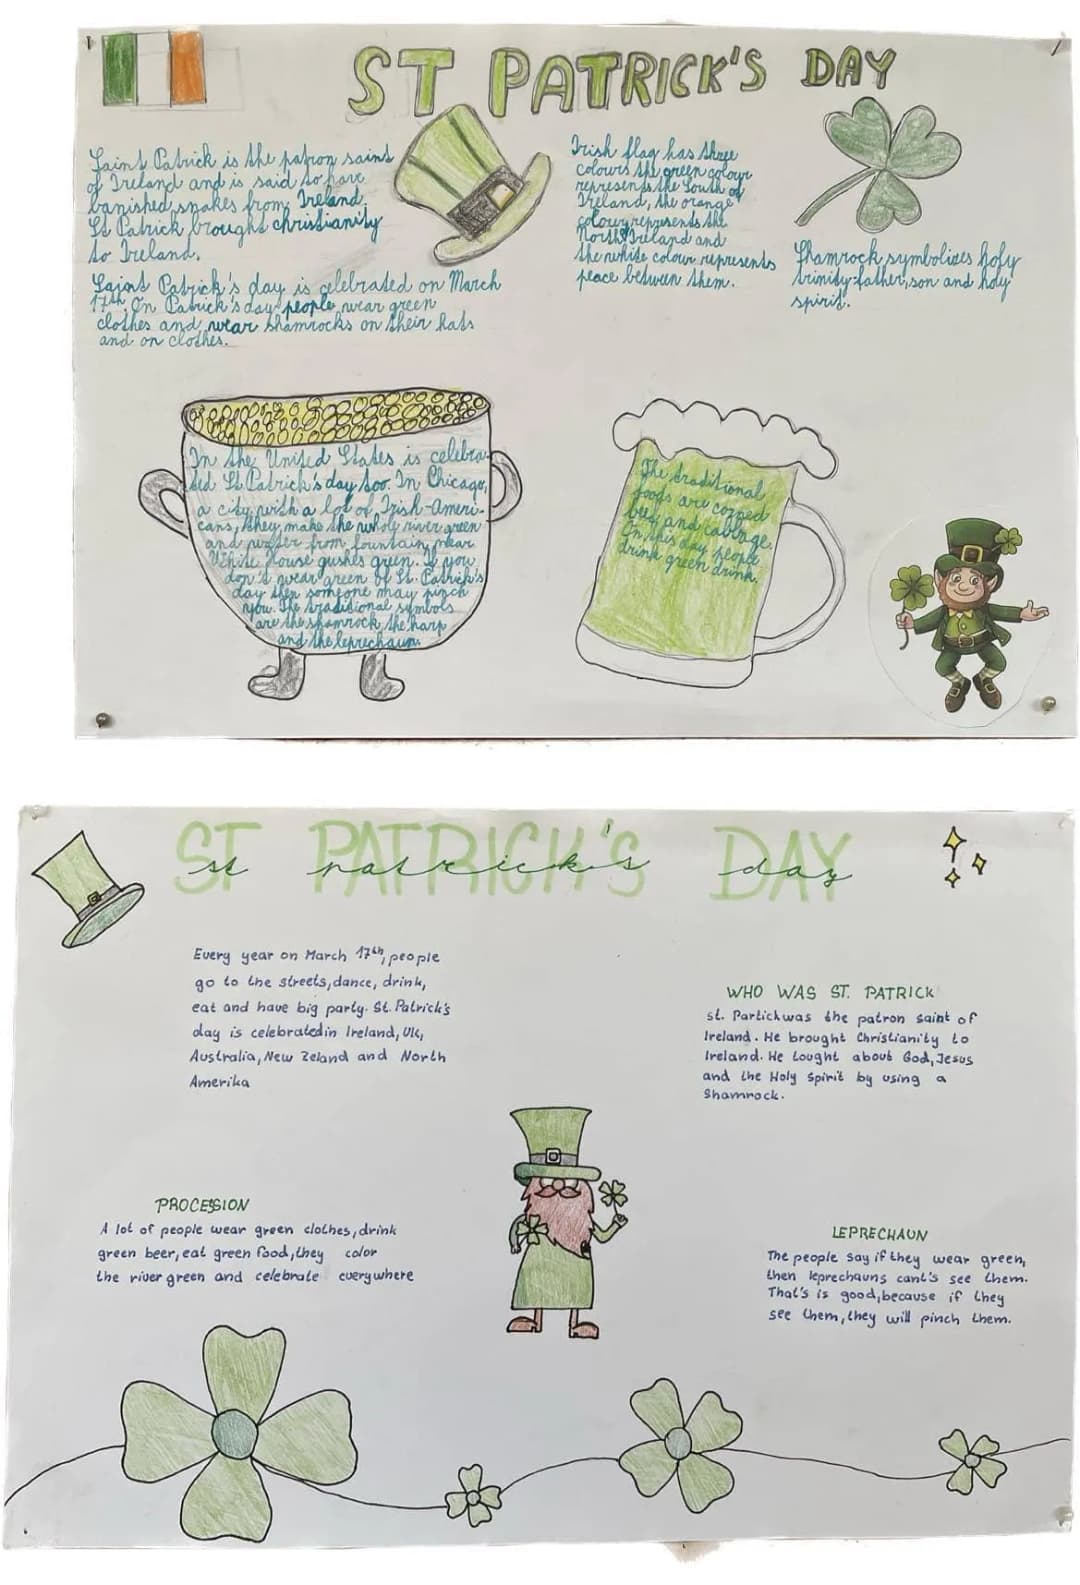 ST PATRICK'S DAY
Saint Patrick is the patron saint
of Ireland and is said to have
banished snakes from Ireland.
St Patrick brought christianity
to Ireland.
Saint Patrick's day is celebrated on March
17th. On Patrick's day people wear green
clothes and wear shamrocks on their hats
and on clothes.
Irish flag has three
colours the green colour
represents the South of
Ireland, the orange
colour represents the
North Ireland and
the white colour represents
peace between them.
Shamrock symbolizes holy
trinity-father, son and holy
spirit.
In the United States is celebra-
ted St Patrick's day too. In Chicago,
a city with a lot of Irish-Ameri-
cans, they make the whole river green
and water from fountain near
White House gushes green. If you
don't wear green of St. Patrick's
day then someone may pinch
you. The traditional symbols
are the shamrock the harp
and the leprechaun.
The traditional
foods are corned
beef and cabbage.
On this day people
drink green drink.
ST PATRICK'S DAY
st patrick's day
Every year on March 17th, people
go to the streets, dance, drink,
eat and have big party. St. Patrick's
day is celebrated in Ireland, UK,
Australia, New Zeland and North
Amerika
WHO WAS ST. PATRICK
St. Partick was the patron saint of
Ireland. He brought Christianity to
Ireland. He tought about God, Jesus
and the Holy Spirit by using a
Shamrock.
PROCESSION
A lot of people wear green clothes, drink
green beer, eat green food, they color
the river green and celebrate everywhere
LEPRECHAUN
The people say if they wear green,
then leprechauns cant's see them.
That's is good, because if they
see them, they will pinch them.